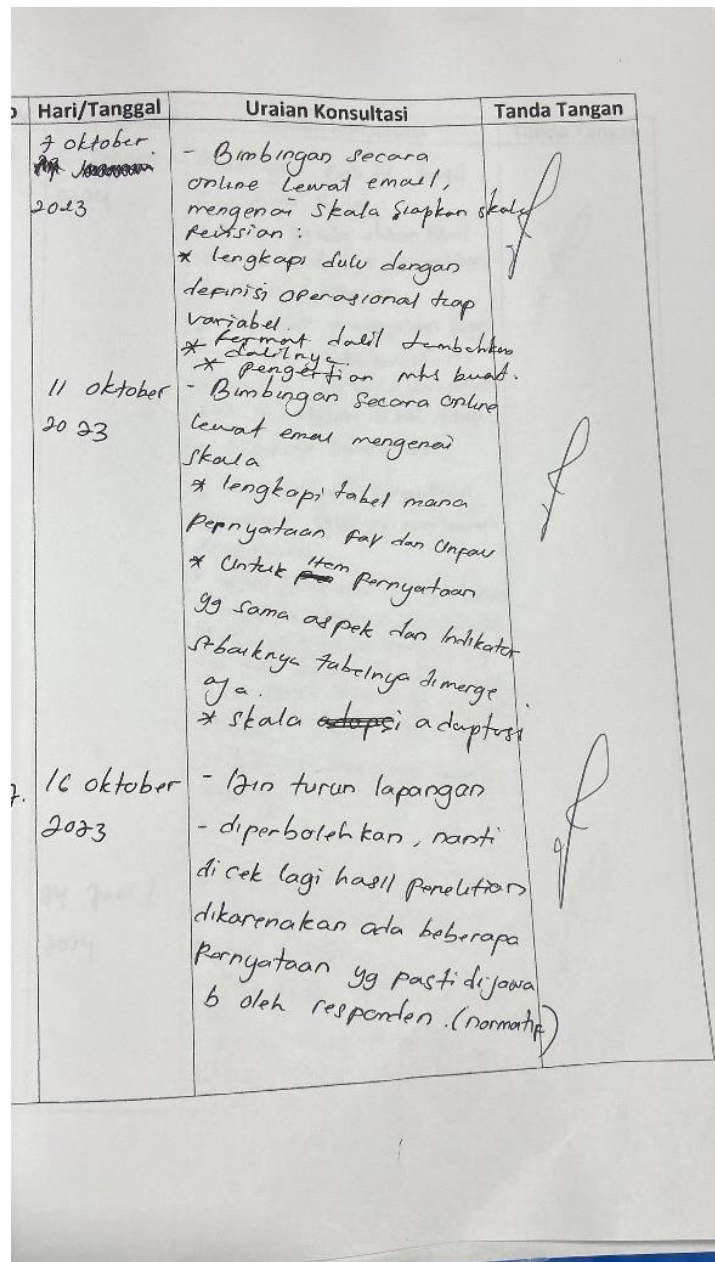 Hari/Tanggal Uraian Konsultasi Tanda Tangan
7 oktober
2023
- Bimbingan secara
online lewat email,
mengenai skala siapkan skala
Revisian :
* lengkapi dulu dengan
definisi operasional tiap
variabel.
* format dalil tambahkan
dalilnya
* pengertian mhs buat.
11 oktober
2023
- Bimbingan secara online
lewat email mengenai
skala
* lengkapi tabel mana
pernyataan fav dan Unfav
* Untuk item pernyataan
yg sama aspek dan Indikator
sebaiknya tabelnya dimerge
aja.
* skala adopsi adaptasi
7. 16 oktober
2023
- Izin turun lapangan
- diperbolehkan, nanti
di cek lagi hasil penelitian
dikarenakan ada beberapa
Pernyataan yg pasti dijawa
b oleh responden. (normatif)